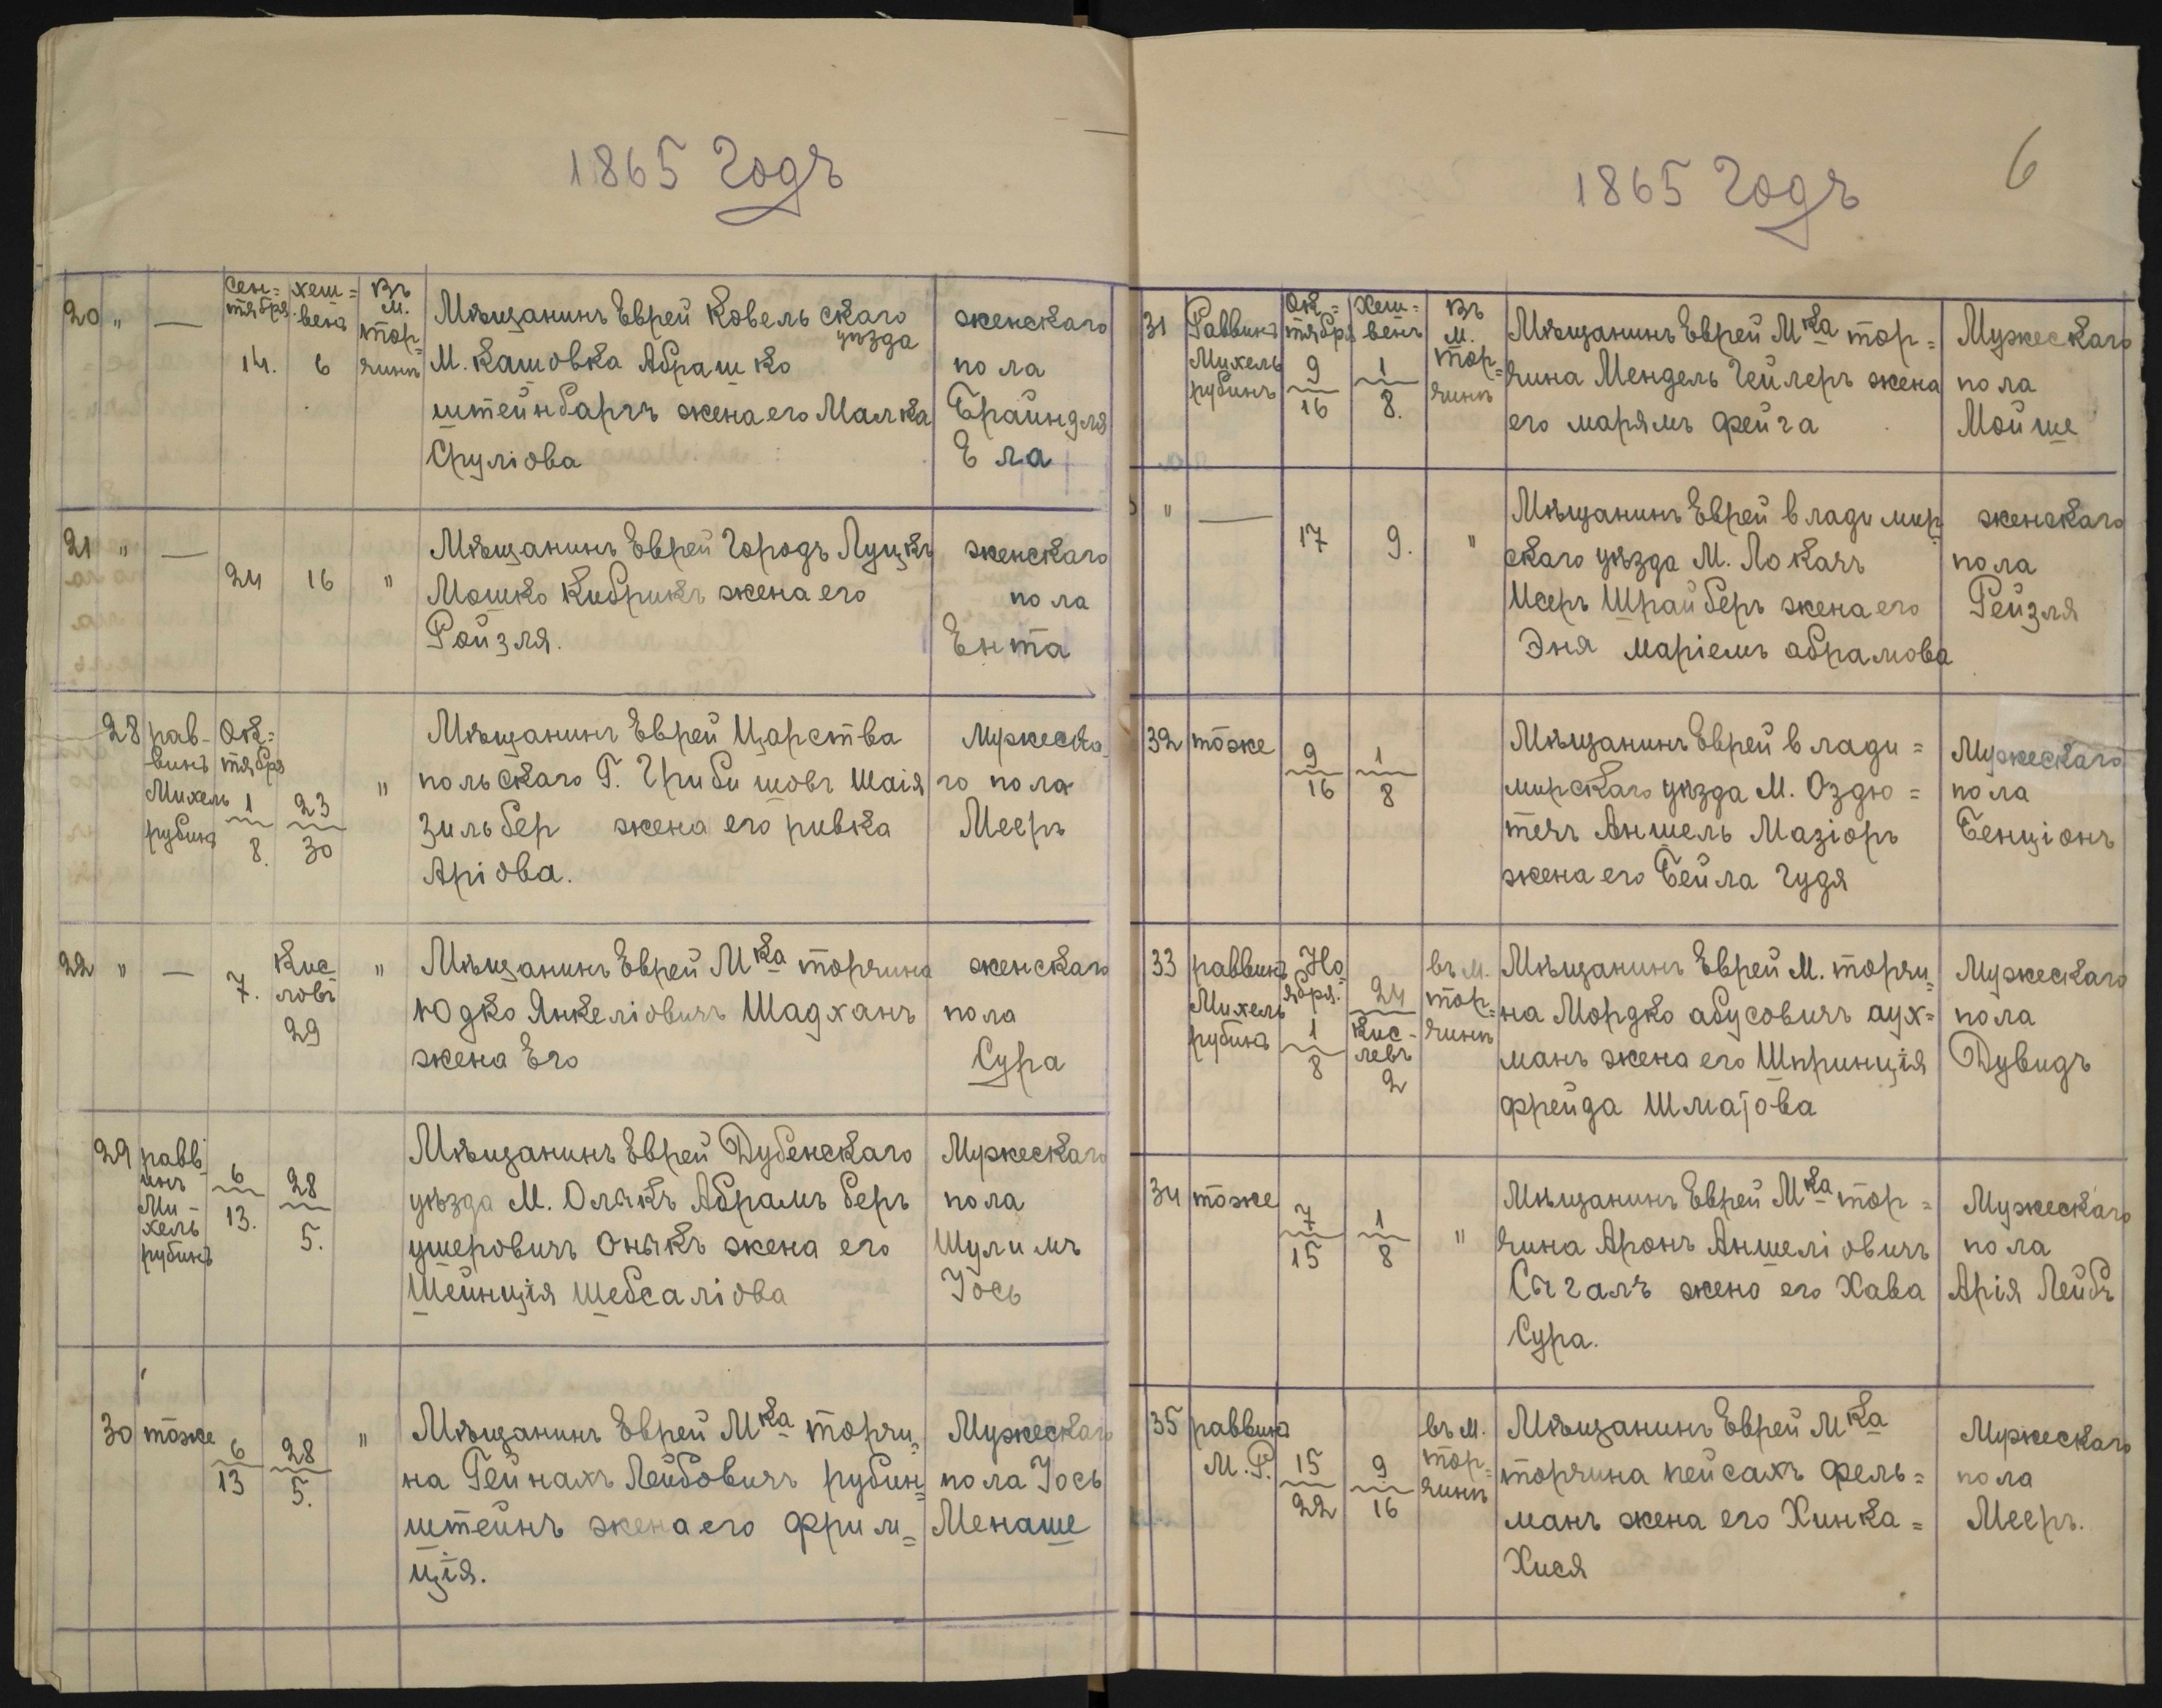 1865 Годъ
20 " — Сен= тября 14. хеш= вена 6 Въ М. тор= чинѣ
Мѣщанинъ Еврей Ковельскаго уѣзда
М. Кашовка Абрашко
штейнбаргъ жена его Малка
Сруліова
женскаго
пола
Брайндля
Ела
21 " — 24 16 "
Мѣщанинъ Еврей Городъ Луцкъ
Мошко Кибрикъ жена его
Ройзля.
женскаго
пола
Ента
28 рав- винъ Михель рубинъ Ок= тября 1 8. 23 30 "
Мѣщанинъ Еврей Царства
польскаго Г. Грибишовъ Шаія
зильбер жена его ривка
Аріова.
Мужеска
го пола
Мееръ
22 " — 7. Кис- ловъ 29 "
Мѣщанинъ Еврей Мка торчина
Юдко Янкеліовичъ Шадханъ
жена Его
женскаго
пола
Сура
29 равв- инъ Ми- хель рубинъ 6 13. 28 5.
Мѣщанинъ Еврей Дубенскаго
уѣзда М. Олыкъ Абрамъ беръ
ушеровичъ Оныкъ жена его
Шейнція Шебсаліова
Мужескаго
пола
Шулимъ
Іось
30 тоже 6 13 28 5. "
Мѣщанинъ Еврей Мка торчи=
на Гейнахъ Лейбовичъ рубин=
штейнъ жена его фрим=
ція.
Мужескаго
пола Іось
Менаше
1865 Годъ
6
31 Раввинъ Михель рубинъ Ок= тября 9 16 Хеш= венъ 1 8. Въ м. тор= чинѣ
Мѣщанинъ Еврей Мка тор=
чина Мендель Гейлеръ жена
его марямъ фейга
Мужескаго
пола
Мойше
" — 17 9. "
Мѣщанинъ Еврей владимир
скаго уѣзда М. Локачъ
Исеръ Шрайберъ жена его
Эня маріемъ абрамова
женскаго
пола
Рейзля
32 тоже 9 16 1 8
Мѣщанинъ Еврей влади=
мирскаго уѣзда М. Оздю=
течъ Аншель Мазіоръ
жена его Бейла гудя
Мужескаго
пола
Бенціонъ
33 раввинъ Михель рубинъ Но ября. 1 8 24 Кис- левъ 2 въ м. тор= чинѣ
Мѣщанинъ Еврей м. торчи=
на Мордко абусовичъ аух=
манъ жена его Шпринція
фрейда Шмаіова
Мужескаго
пола
Дувидъ
34 тоже 7 15 1 8 "
Мѣщанинъ Еврей Мка тор=
чина Аронъ Аншеліовичъ
Сыгалъ жена его Хава
Сура.
Мужескаго
пола
Арія Лейбъ
35 раввинъ М. Р. 15 22 9 16 въ м. тор= чинѣ
Мѣщанинъ Еврей Мка
торчина пейсахъ фель=
манъ жена его Хинка=
Хися
Мужескаго
пола
Мееръ.